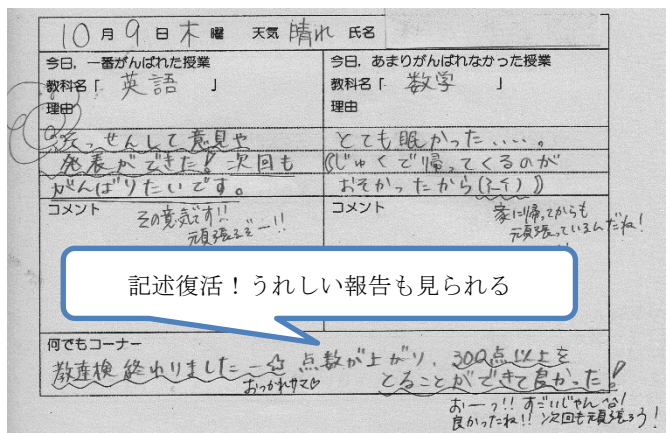 10月9日木曜 天気 晴れ 氏名
今日、一番がんばれた授業
教科名「 英語 」
理由
せんして意見や
発表ができた！次回も
がんばりたいです。
コメント
その意気です!!
頑張るぞー!!
今日、あまりがんばれなかった授業
教科名「 数学 」
理由
とても眠かった....。
(じゅくで帰ってくるのが
おそかったから
コメント
家に帰ってからも
頑張っているんだね!
記述復活！うれしい報告も見られる
何でもコーナー
教達検終わりましたー☆ 点数が上がり、300点以上を
おつかれサマ♡
とることができて良かった!
おーっ!! すごいじゃん
良かったね!! 次回も頑張ろう!